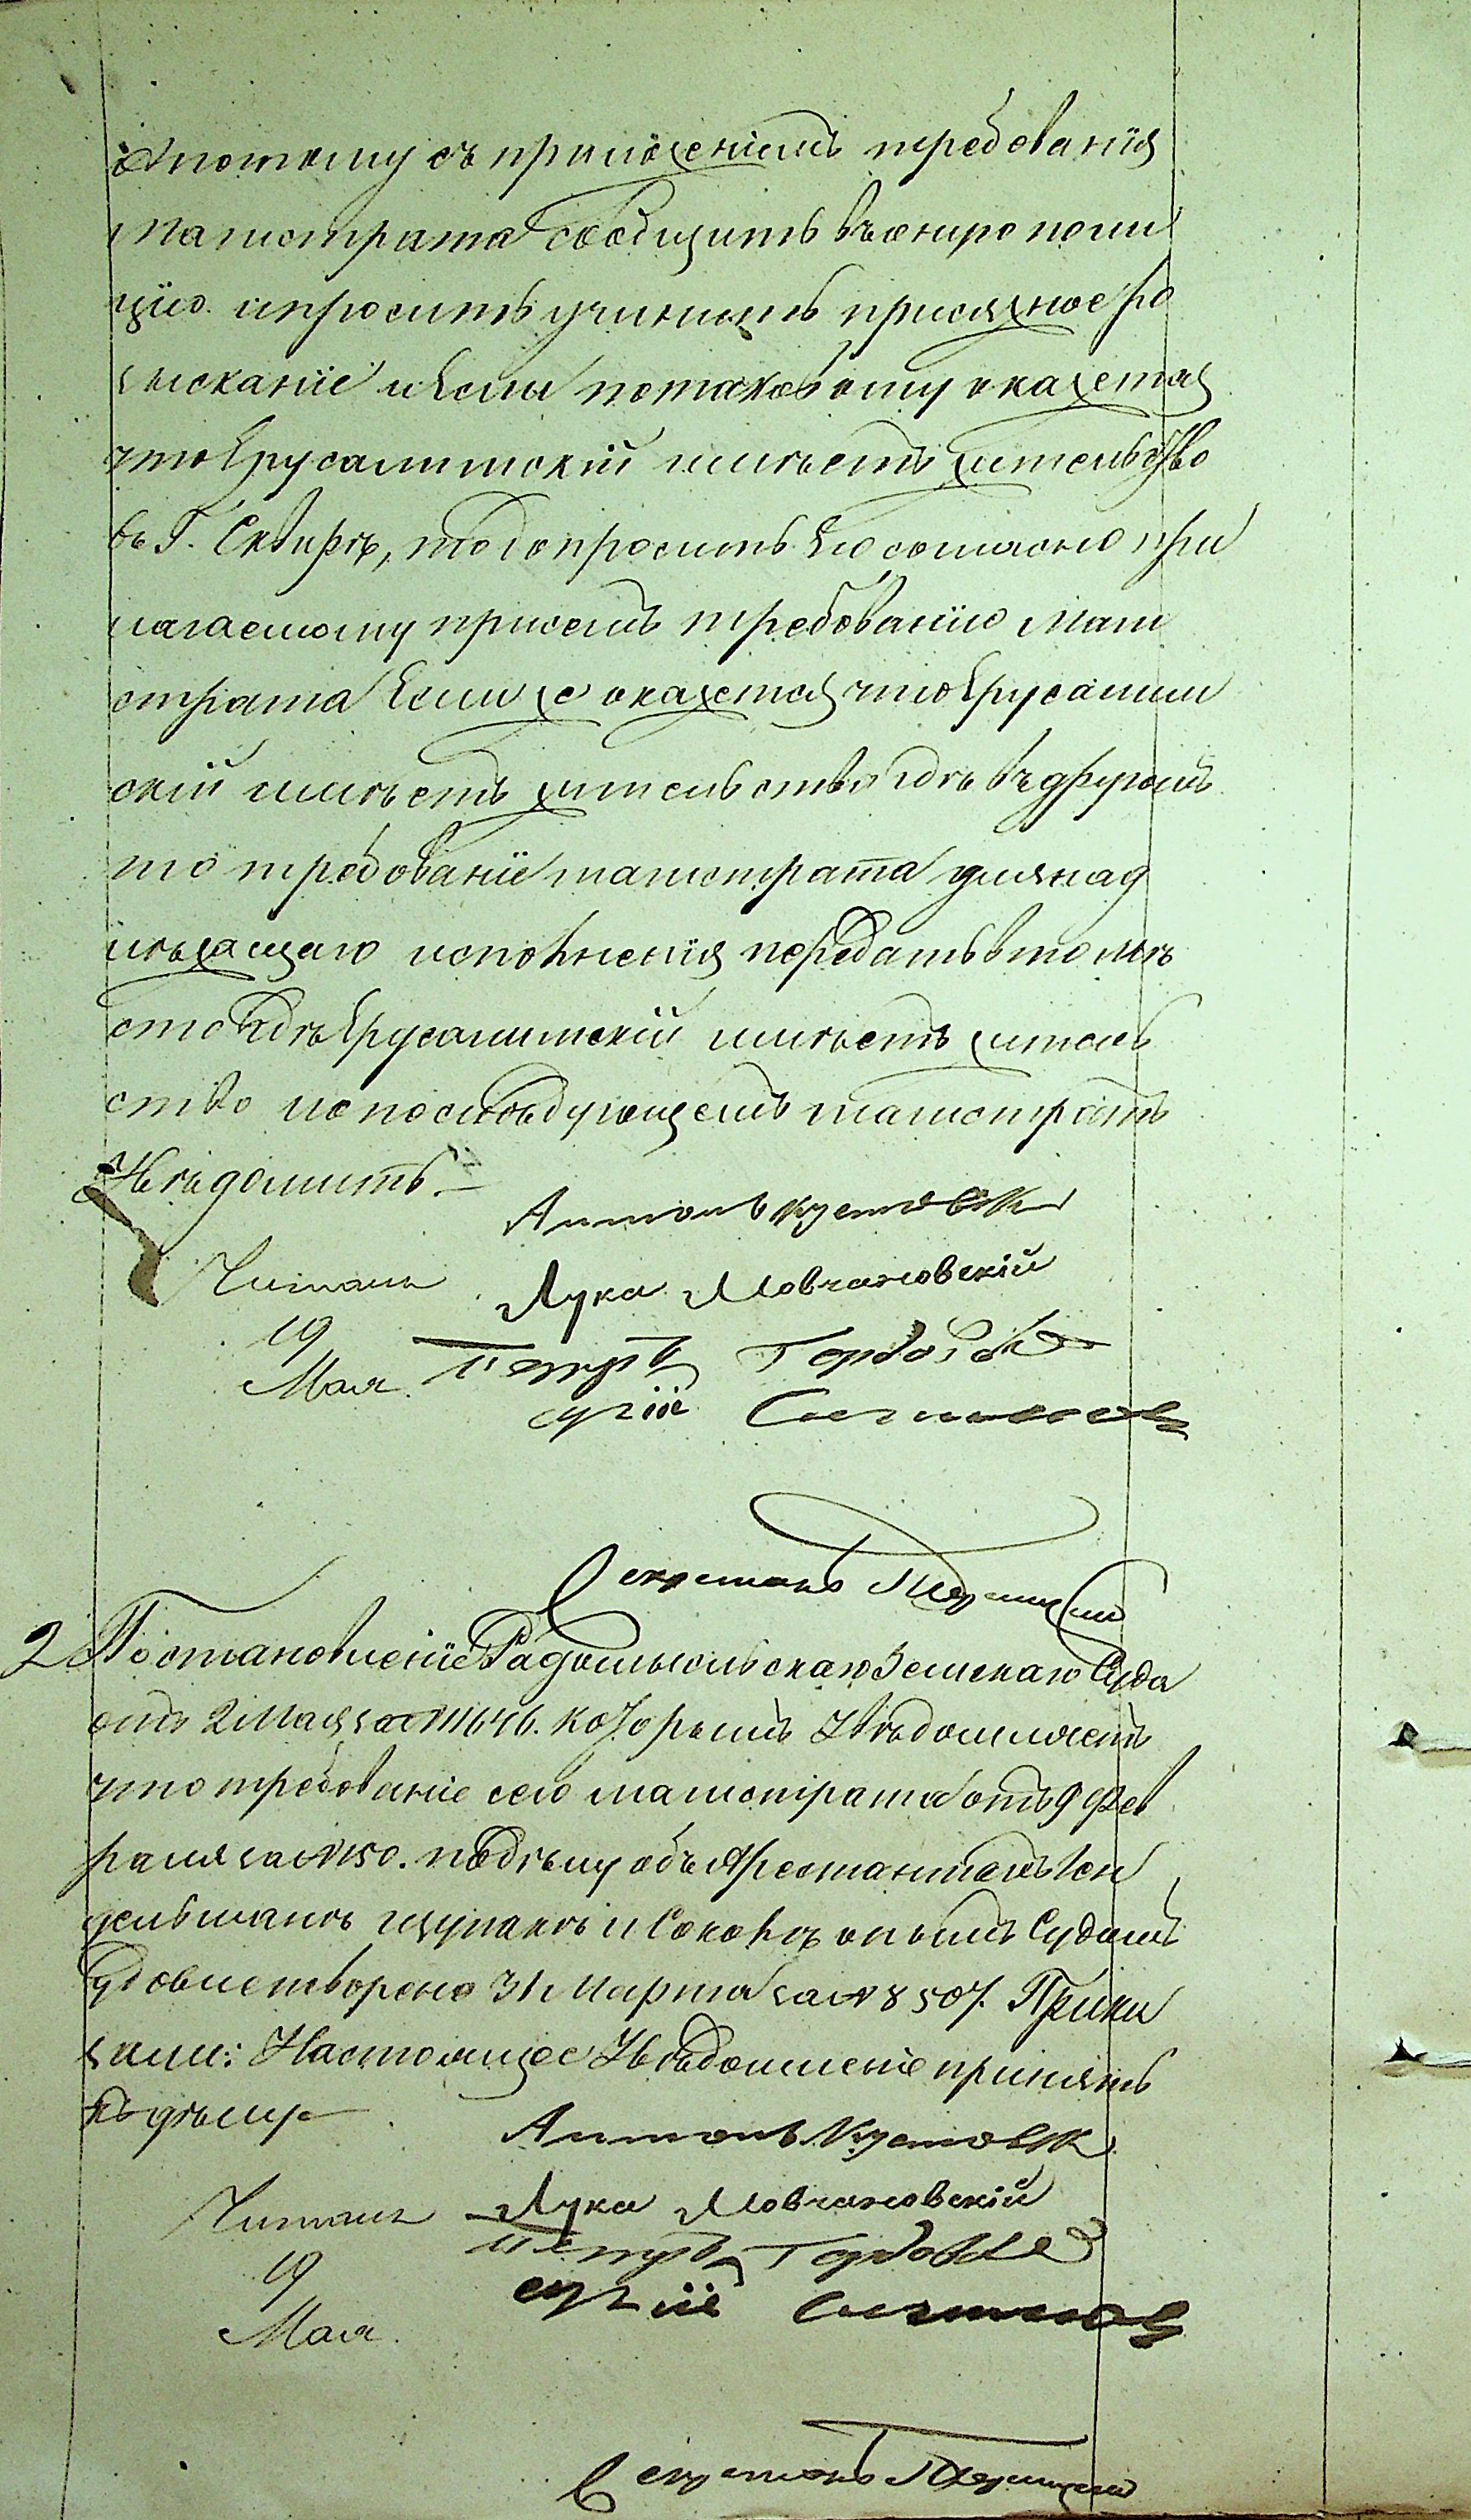 а потому съ приложеніемъ требованія
магистрата сообщить въ онную поли
цію и просить учинить присяжное ро
зысканіе и Если потаковому окажется
что Ерусалимскій имѣетъ жительство
въ Г. Сквирѣ, то допросить Его согласно при
лагаемому присемъ требованію Маги
страта Если же окажется что Ерусалим
скій имѣетъ жительство гдѣ въ другомъ
то требованіе магистрата для над
лѣжащаго исполненія передать в то мѣ
сто гдѣ Ерусалимскій имѣетъ житель
ство и о послѣдующемъ магистратъ
Увѣдомить
Антонъ Кустовск
Читалъ
Лука Мовчановскій
19
Мая
Петръ Горбов
Секретарь
2 Постановленіе Радомысльскаго Земскаго Суда
отъ 2 Мая за № 11646. Которымъ Увѣдомляетъ
что требованіе сего магистрата отъ 9 Фев
раля за № 150. по дѣлу объ Арестантахъ Кен
дельманѣ Щупакѣ и Соколѣ онымъ Судомъ
удовлетворено 31 Марта за № 8507. Прика
зали: Настоящее Увѣдомленіе принять
къ дѣлу
Антонъ Кустовск
Читалъ
Лука Мовчановскій
19
Мая
Петръ Горбов
Секретарь